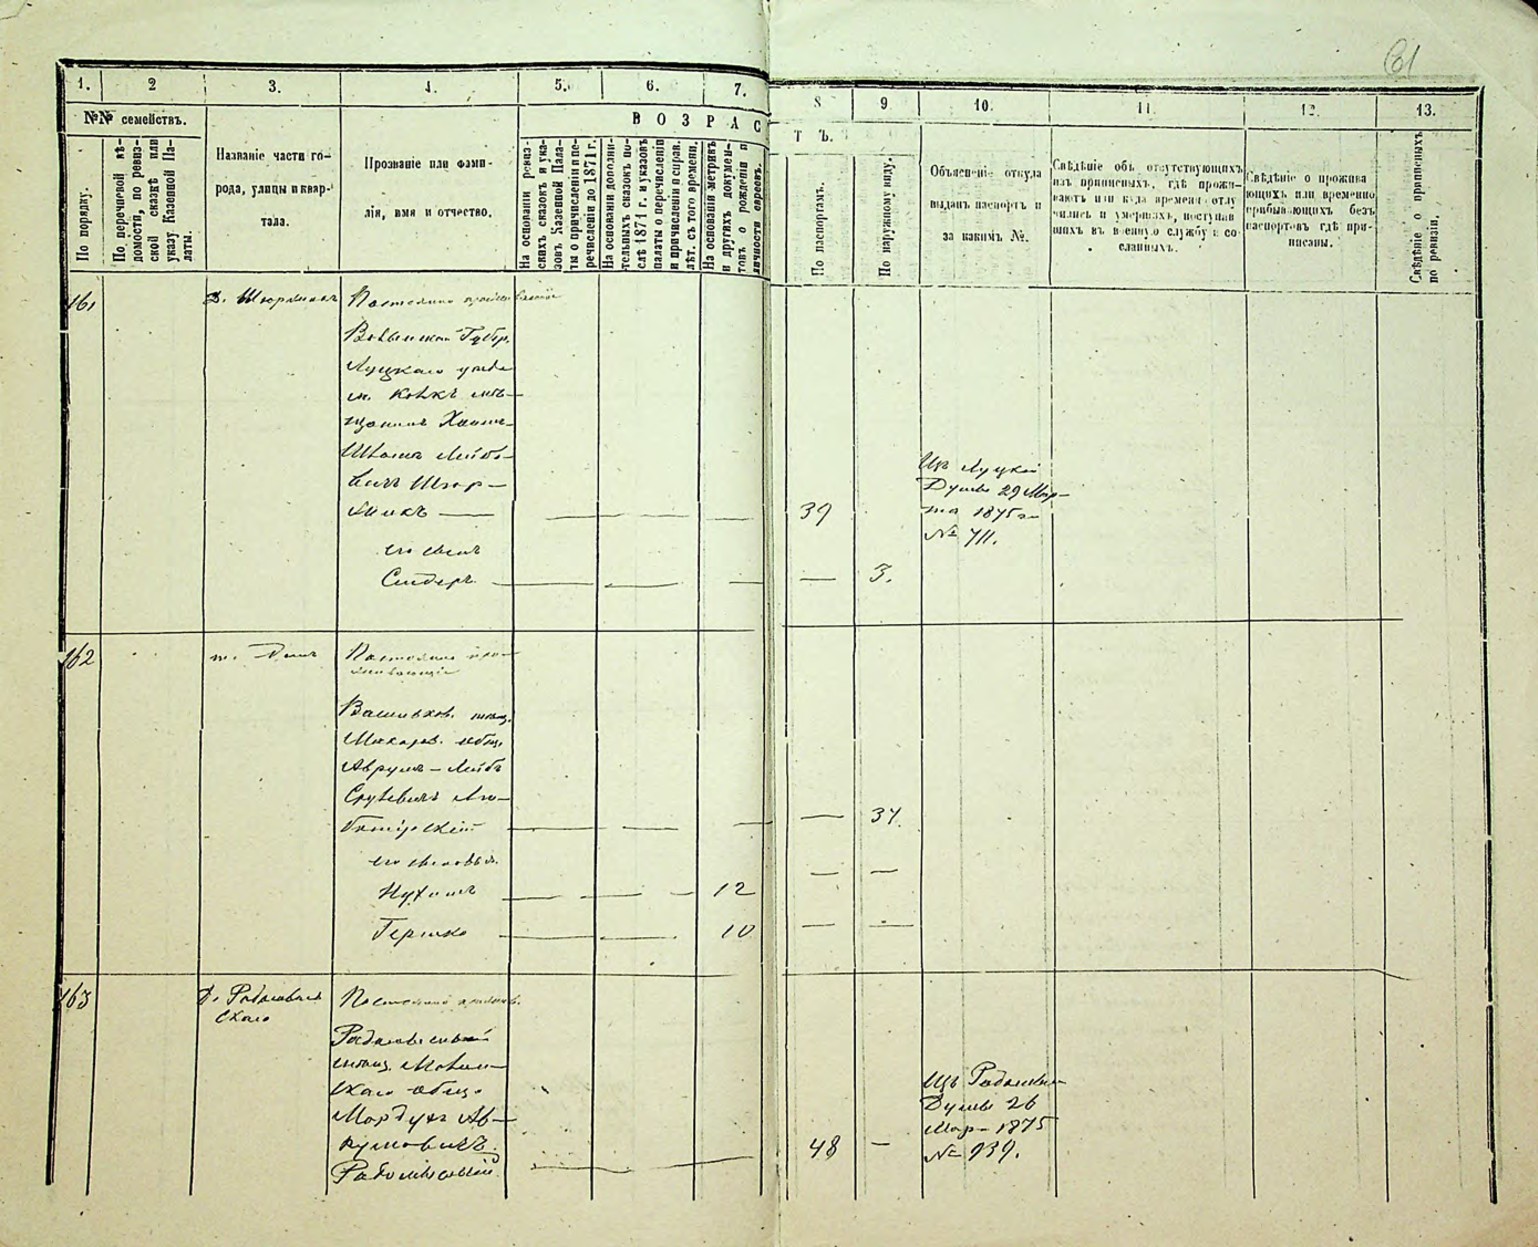 61
1. 2 3. 4. 5. 6. 7. 8 9 10. 11. 12. 13.
№№ семействъ.
По порядку.
По перечневой вѣ-
домости, по ревиз-
ской сказкѣ или
указу Казенной Па-
латы.
Названіе части го-
рода, улицы и квар-
тала.
Прозваніе или фами-
лія, имя и отчество.
ВОЗРАСТЪ.
На основаніи ревиз-
скихъ сказокъ и ука-
зовъ Казенной Пала-
ты о причисленіи и пе-
речисленіи до 1871 г.
На основаніи дополни-
тельныхъ сказокъ по-
слѣ 1871 г. и указовъ
палаты о перечисленіи
и причисленіи и справ.
лѣт. съ того времени.
На основаніи метрикъ
и другихъ докумен-
товъ о рожденіи и
личности евреевъ.
По паспортамъ.
По наружному виду.
Объясненіе откуда
выданъ паспортъ и
за какимъ №.
Свѣдѣніе объ отсутствующихъ
изъ приписныхъ, гдѣ прожи-
ваютъ или куда времени отлу
чились и умершихъ, поступив
шихъ въ военную службу и со-
сланныхъ.
Свѣдѣніе о прожива
ющихъ или временно
прибывающихъ безъ
паспортовъ гдѣ при-
писаны.
Свѣдѣніе о приписныхъ
по ревизіи.
161 д. Шюрмикъ Постоянно
Волынской Губер.
Луцкаго уѣзда
м. Колкъ мѣ-
щанинъ Хаимъ-
Шлома Лейбо-
вичъ Шюр-
микъ — 39
Изъ Луцкой
Думы 29 Мар-
та 1875 г.
№ 711.
его сынъ
Сендеръ — 3.
162 Постоянно про-
живающіе
Васильков. мѣщ.
Макаров. общ.
Аврумъ-Лейбъ
Срулевичъ — 37.
его сыновья
Нухимъ — 12
Гершко — 10
163 д. Радомысль
скаго
Постоянно прожив.
Радомысльскій
мѣщ.
скаго общ.
Мордухъ Ав-
румовичъ
Радомысльскій — 48 —
Изъ Радомысл.
Думы 26
Мар- 1875
№ 939.